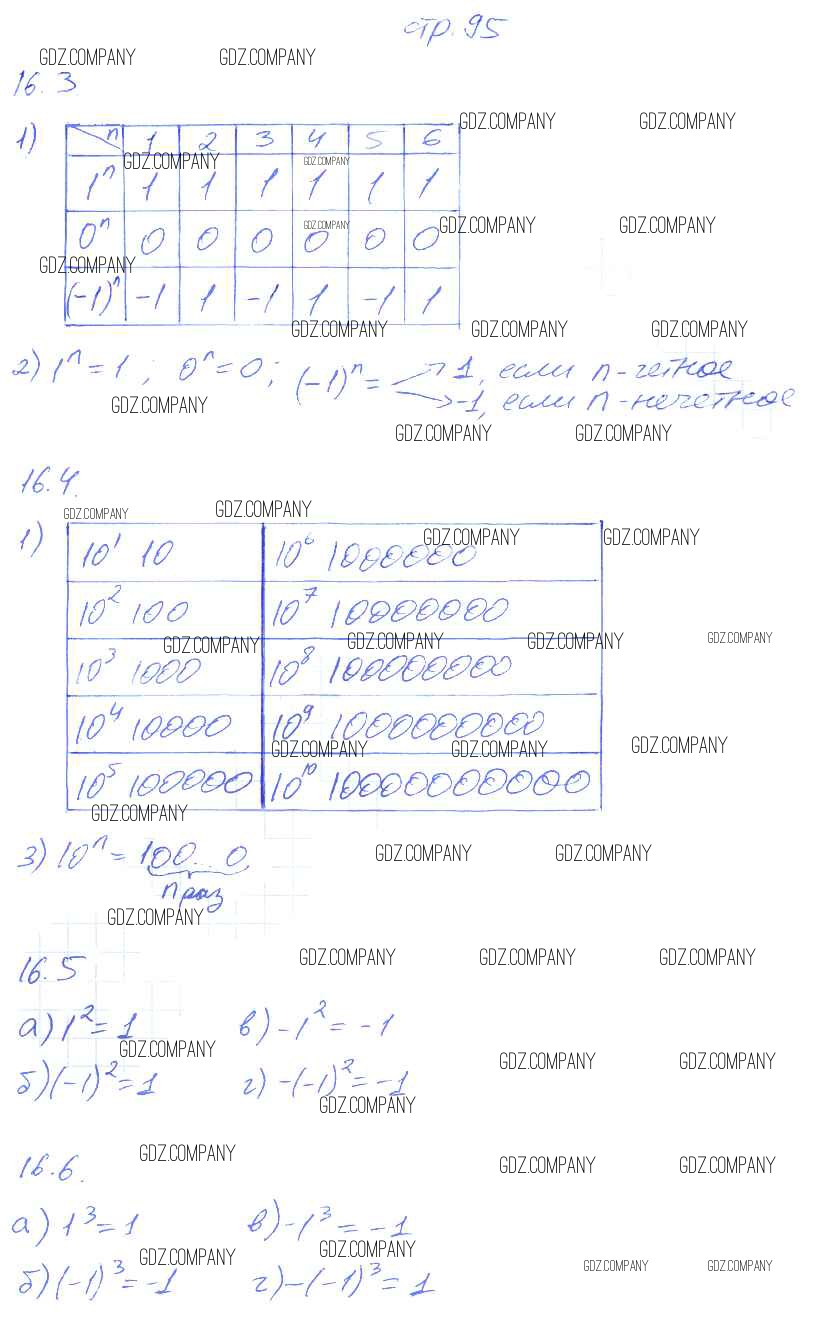 стр. 95
GDZ.COMPANY GDZ.COMPANY
16.3
GDZ.COMPANY GDZ.COMPANY
1) n 1 2 3 4 5 6
GDZ.COMPANY GDZ.COMPANY
1ⁿ 1 1 1 1 1 1
GDZ.COMPANY GDZ.COMPANY GDZ.COMPANY
0ⁿ 0 0 0 0 0 0
GDZ.COMPANY
(-1)ⁿ -1 1 -1 1 -1 1
GDZ.COMPANY GDZ.COMPANY GDZ.COMPANY
2) 1ⁿ = 1 ; 0ⁿ = 0 ; (-1)ⁿ = → 1, если n - четное
→ -1, если n - нечетное
GDZ.COMPANY
GDZ.COMPANY GDZ.COMPANY
16.4.
GDZ.COMPANY GDZ.COMPANY
GDZ.COMPANY GDZ.COMPANY
1) 10¹ 10 10⁶ 1000000
10² 100 10⁷ 10000000
GDZ.COMPANY GDZ.COMPANY GDZ.COMPANY GDZ.COMPANY
10³ 1000 10⁸ 100000000
10⁴ 10000 10⁹ 1000000000
GDZ.COMPANY GDZ.COMPANY GDZ.COMPANY
10⁵ 100000 10¹⁰ 10000000000
GDZ.COMPANY
3) 10ⁿ = 100...0
GDZ.COMPANY GDZ.COMPANY
n раз
GDZ.COMPANY
GDZ.COMPANY GDZ.COMPANY GDZ.COMPANY
16.5
а) 1² = 1 в) -1² = -1
GDZ.COMPANY
GDZ.COMPANY GDZ.COMPANY
б) (-1)² = 1 г) -(-1)² = -1
GDZ.COMPANY
GDZ.COMPANY
16.6.
GDZ.COMPANY GDZ.COMPANY
а) 1³ = 1 в) -1³ = -1
GDZ.COMPANY GDZ.COMPANY
GDZ.COMPANY GDZ.COMPANY
б) (-1)³ = -1 г) -(-1)³ = 1